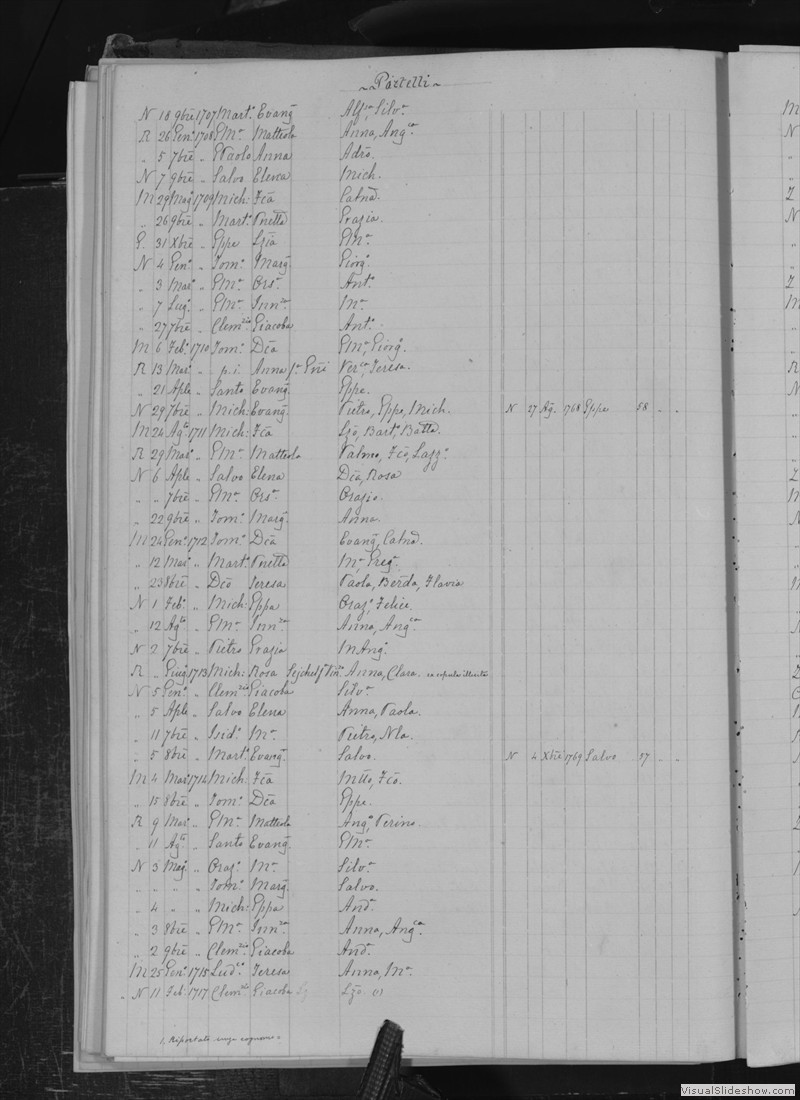 ~ Portelli ~
N 18 9bre 1707 Mart.o Evang. Alf.sa, Silv.a
R 26 Gen.o 1708 GM.a Mattiola Anna, Ang.ca
" 5 7bre " GPaolo Anna Adrō.
N 7 9bre " Salvo Elena Mich.
M 29 Mag.o 1709 Mich: Fcā Catnā.
" 26 9bre " Mart.o Pnetta Grazia.
G. 31 Xbre " Gppe Lzia GM.a
N 4 Gen.o " Dom.o Marg. Giorg.o
" 3 Mar.o " GM.a Ors.a Ant.o
" 7 Lug.o " GM.a Inn.za M.a
" 27 7bre " Clem.zio Giacoba Ant.o
M 6 Feb.o 1710 Dom.o Dcā GM.a, Giorg.o
R 13 Mar.o " p.i. Anna Ver.ca, Teresa.
" 21 Aple " Santo Evang. Gppe.
N 29 7bre " Mich: Evang. Pietro, Gppe, Mich. N 27 Ag. 1768 Gppe 58 - -
M 24 Ag.to 1711 Mich: Fcā Lzō, Bart.o Batta.
R 29 Mar.o " GM.a Mattiola Palmo, Fcō, Lazz.o
N 6 Aple " Salvo Elena Dcā, Rosa
" " 7bre " GM.a Ors.a Orazio.
" 22 9bre " Dom.o Marg. Anna.
M 24 Gen.o 1712 Dom.o Dcā Evang, Catnā.
" 12 Mar.o " Mart.o Pnetta M.a, Greg.o
" 23 8bre " Dcō Teresa Paola, Berda, Flavia
N 1 Feb.o " Mich: Gppa Oraz.o, Felice.
" 12 Ag.to " GM.a Inn.za Anna, Ang.ca
N 2 7bre " Pietro Grazia MAng.o
R " Giug.o 1713 Mich: Rosa Anna, Clara. ex copula illicita
N 5 Gen.o " Clem.zio Giacoba Silv.a
" 5 Aple " Salvo Elena Anna, Paola.
" 11 7bre " Isid.o M.a Pietro, Nla.
" 5 8bre " Mart.o Evang. Salvo. N 4 Xbre 1769 Salvo 57 - -
M 4 Mar.o 1714 Mich: Fcā Mtto, Fcō.
" 15 8bre " Dom.o Dcā Gppe.
R 9 Mar.o " GM.a Mattiola Ang.o, Perino.
" 11 Ag.to " Santo Evang. GM.a
N 3 Mag. " Oraz.o M.a Silv.a
" " " " Dom.o Marg. Salvo.
" 4 " " Mich: Gppa And.a
" 3 8bre " GM.a Inn.za Anna, Ang.ca
" 2 9bre " Clem.zio Giacoba And.a
M 25 Gen.o 1715 Lud.co Teresa Anna, M.a
N 11 Feb. 1717 Clem.zio Giacoba Lzō. (1)
1. Riportato senza cognome.
VisualSlideshow.com